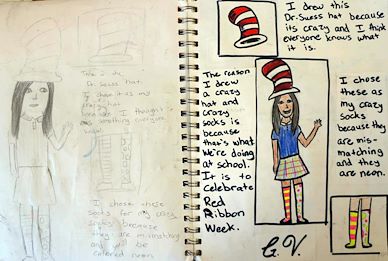 This is the
Dr. Suess hat.
I chose it as my
crazy hat
because I thought it
was something everyone
knows
I chose these
socks for my crazy
socks because
they are mismatching
and will be
colored neon
I drew this
Dr. Suess hat because
its crazy and I think
everyone knows what
it is.
The reason
I drew
a crazy
hat and
crazy
socks is
because
that's what
We're doing
at school.
It is to
celebrate
Red
Ribbon
Week.
I chose
these as
my crazy
socks
because they
are mis-
matching
and they
are neon.
G.V.